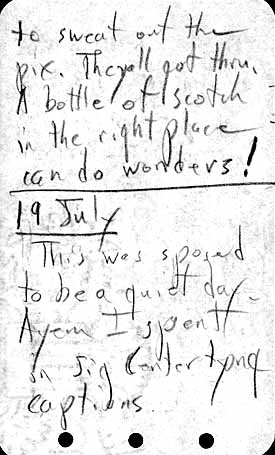 to sweat out the
pix. They all got thru.
A bottle of scotch
in the right place
can do wonders!
19 July
This was sposed
to be a quiet day.
Ayem I spent
in Sig Center typng
captions.